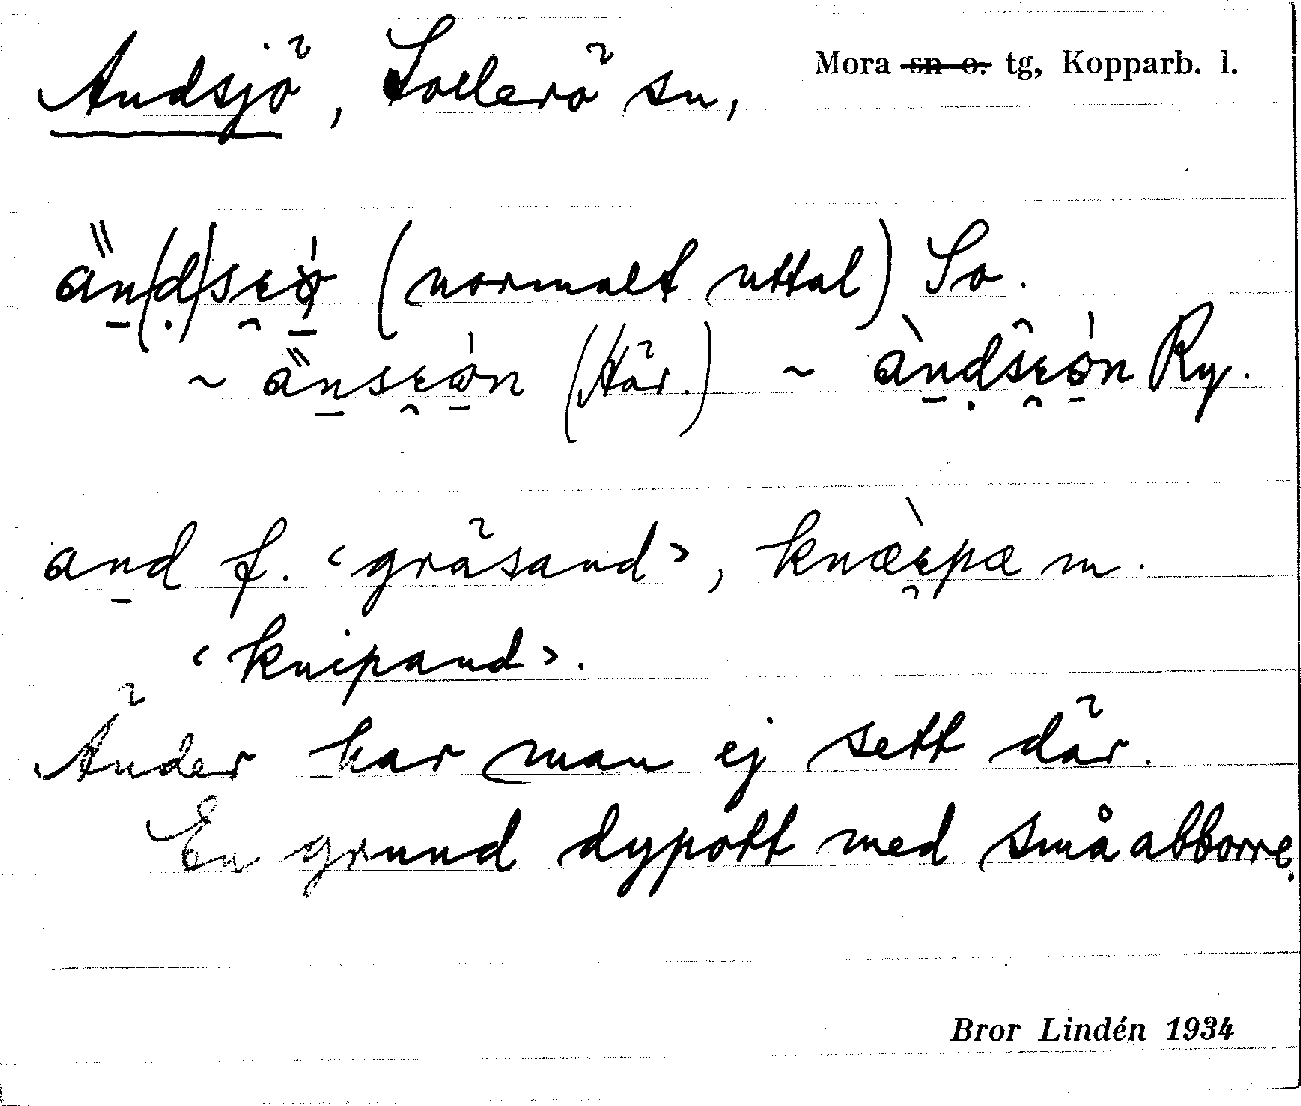 Andsjö, Sollerö sn, Mora ~~sn o.~~ tg, Kopparb. l.
än(d)sɛǿ (normalt uttal) So.
~ änsɛøń (Här.) ~ àndsɛøń Ry.
and f. ‹gräsand›, knæ̀ɛpæ m.
‹knipand›.
Änder har man ej sett där.
En grund dypott med små abborre.
Bror Lindén 1934